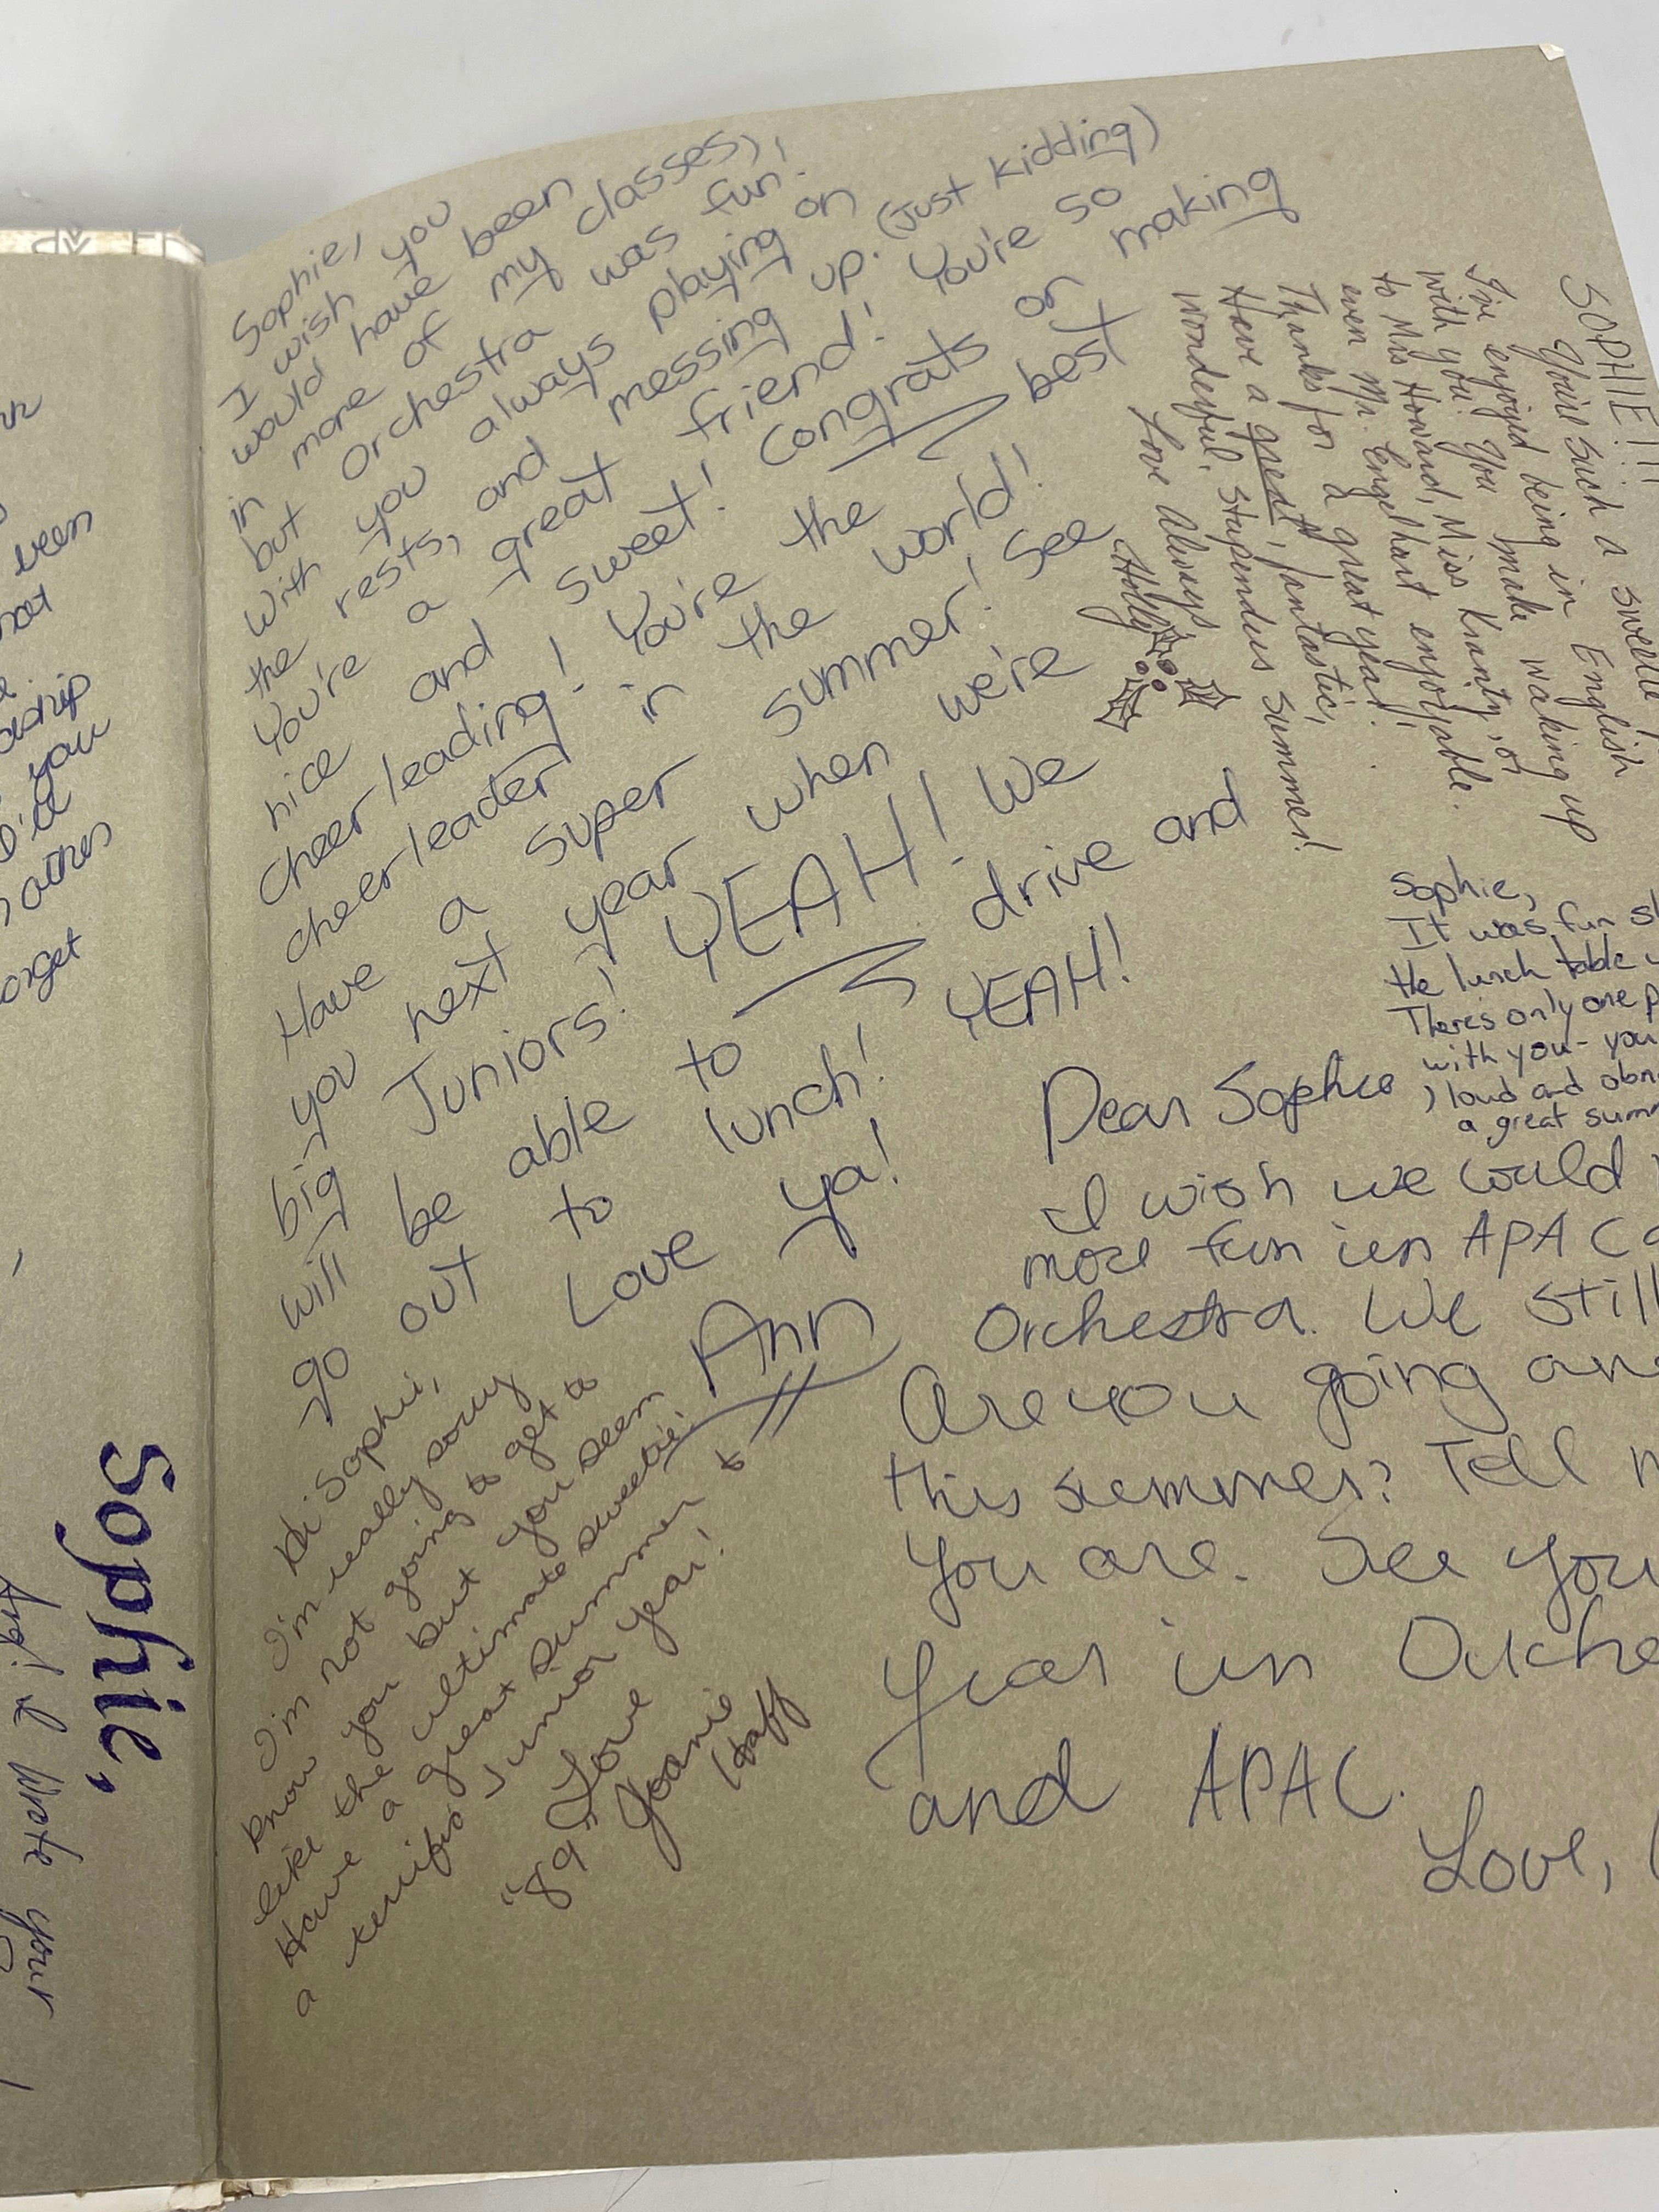 Sophie,
I wish you
would have been
in more of my classes,
but orchestra was fun!
With you always playing on
the rests, and messing up. (Just kidding)
You're a great friend! You're so
nice and sweet! Congrats on making
cheerleading! You're the best
cheerleader in the world!
Have a super summer! See
you next year when we're
big Juniors! YEAH! We
will be able to drive and
go out to lunch! YEAH!
Love ya!
Ann
SOPHIE!!!
You're such a sweetie!
I've enjoyed being in English
with you! You make waking up
to Mrs Howard, Miss Kranty, or
even Mr. Engelhart enjoyable.
Thanks for a great year!
Have a great, fantastic,
wonderful, stupendus summer!
Love Always,
Holly
Sophie,
It was fun
the lunch table
There's only one
with you- you
loud and
a great
Dear Sophie
I wish we could
more fun in APAC
Orchestra. We still
Are you going
this summer? Tell
you are. See you
year in
and APAC.
Love,
Hi Sophie,
I'm really sorry
I'm not going to get to
know you but you seem
like the ultimate sweetie.
Have a great summer &
a terrific Junior year!
Love
"89" Joanie
Haff
been
not
you
others
Sophie,
I wrote your